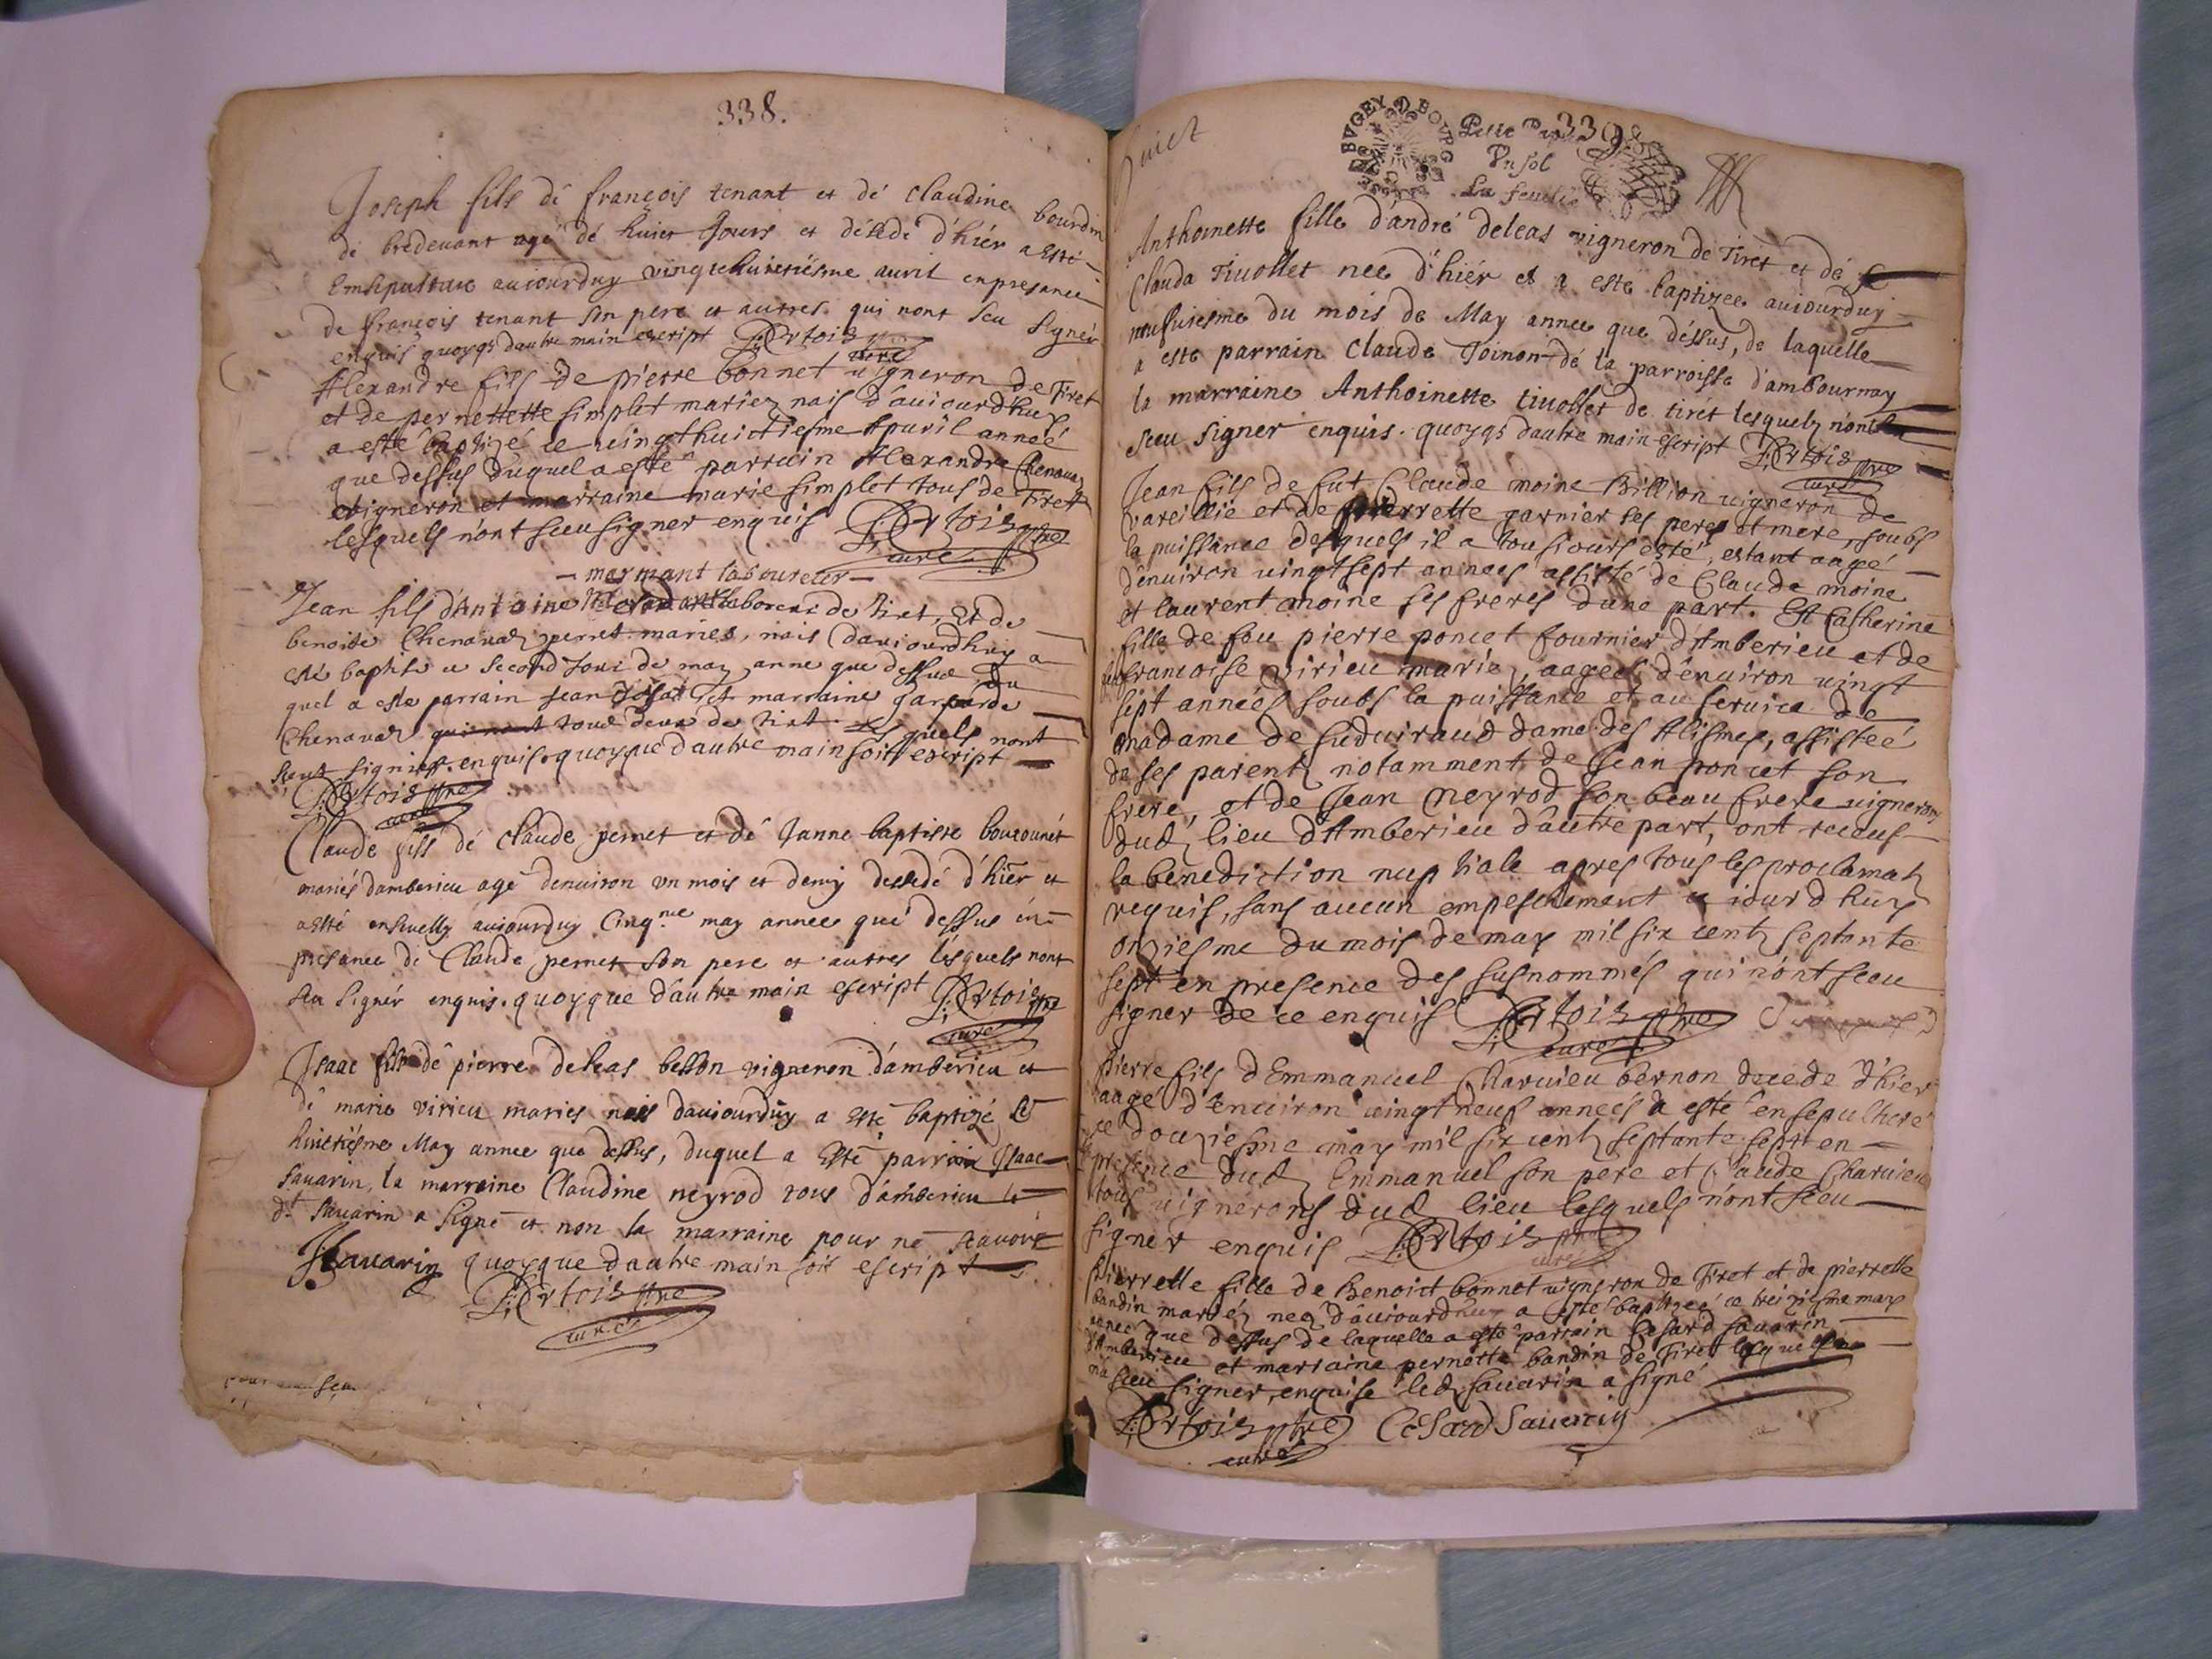 338.
Joseph fils dé françois tenant et dé claudine bourdin
de bredevant agé dé huict Jours et décédé d'hiér a esté
Ensepulturé aujourduy vingtehuictiésme avril en presance
de françois tenant son pere et autres qui nont sceu signér
enquis quoyqs dautre main escript
curé
Alexandre fils de pierre bonnet vigneron de Tiret
et de pernettette simplet mariez nais d'aujourd'huy
a esté baptizé ce vingthuictiesme Apuril anneé
que dessus duquel a esté parrain Alexandre Chenavaz
vigneron et marraine marie simplet tous de Tirett
lesquels n'ont sceu signer enquis
ptre curé
- marmant laboureur -
Jean fils d'Antoine laboreur de Tiret, Et de
benoite Chenavaz perret mariés, nais daujourdhuy a
esté baptisé ce second Jour de may anne que dessus du
quel a este parrain Jean et marraine
Chenavaz qui nont tous deux de tiret lesquels nont
sceuz signier enquis quoyque dautre main soit escript
ptre
curé
Claude fils dé claude pernet et dé Janne baptiste
mariés damberieu agé denuiron un mois et demy decedé d'hiér et
a esté enseuelly aujourduy Cinq.me may annee que dessus en
presance de Claude pernet son pere et autres lesquels nont
sceu signér enquis. quoyque d'autre main escript
ptre
curé
Isaac fils dé pierre deleas besson vigneron d'amberieu et
dé marie virieu mariés nais daujourduy a esté baptizé le
huictiésme May annee que dessus, duquel a Esté parrain Isaac
sauarin, la marraine Claudine neyrod tous d'amberieu le
dt sauarin a signé et non la marraine pour ne scauoir
JSauarin quoyque dautre main soit escript
ptre
curé
huict
BVGEY DE BOVRG
339
Petit Papier
Vn sol
La feuille
Anthoinette fille d'andré deleas vigneron de Tiret et dé
Clauda Tiuollet nee d'hiér et a esté baptizee aujourduy
neufuiesme du mois de May annee que déssus, de laquelle
a esté parrain Claude Toinon dé la parroisse d'ambournay
la marraine Anthoinette tiuollet de tirét lesquelz n'ont
sceu signer enquis. quoyqs dautre main escript
ptre
curé
Jean fils de fut Claude moine Billion vigneron de
vareillie et de pierrette garnier ses peres et mere, soubs
la puissance desquels il a tousiours esté, estant aagé
d'enuiron vingtsept annees assisté de Claude moine
et laurent moine ses freres dune part. Et Catherine
fille de feu pierre poncet fournier d'Amberieu et de
francoise virieu mariez, aagee d'enuiron vingt
sept années soubs la puissance et au seruice de
madame de suduiraud dame des Alismes, assisteé
de ses parentz notamment de Jean poncet son
frere, et de Jean Neyrod son beau frere vignerons
dud. lieu d'Amberieu d'autre part, ont receus
la benediction nuptiale apres tous les proclamatz
requis, sans aucun empeschement ce iourd'huy
onziesme du mois de may mil six centz septante
sept en presence des susnommés qui n'ont sceu
signer de ce enquis
ptre
curé
pierre fils d'Emmanuel Charuieu bernon decede d'hier
aagé d'enuiron vingtneuf anneés a esté ensepulheré
ce douziesme may mil six centz septante sept en
presence dud. Emmanuel son pere et Claude Charuieu
tous vignerons dud. lieu lesquels n'ont sceu
signer enquis
curé
pierrette fille de Benoict bonnet vigneron de Tiret et de pierrette
bandin mariéz neeé d'aujourdhuy a esté baptizeé ce treiziesme may
anneé que dessus de laquelle a esté parrain Cesard sauarin
d'Amberieu et marraine pernette bandin de Tiret
na sceu signer, enquise led. sauarin a signé
ptre Cesard Sauarin
curé